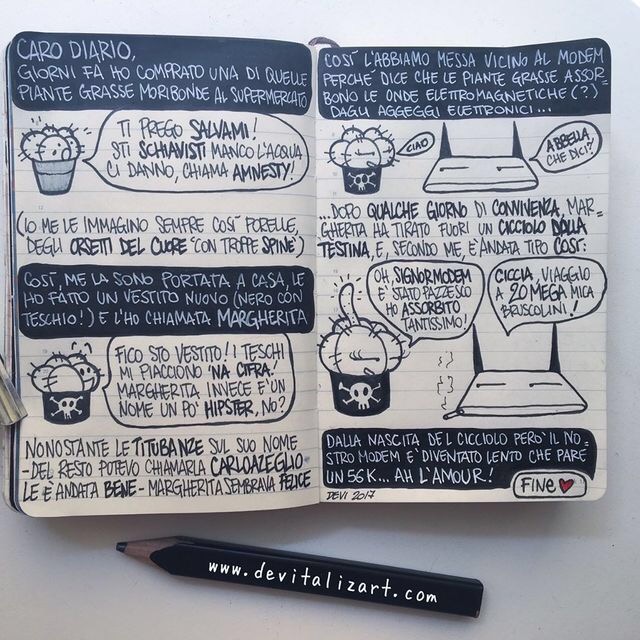 CARO DIARIO,
GIORNI FA HO COMPRATO UNA DI QUELLE
PIANTE GRASSE MORIBONDE AL SUPERMERCATO
TI PREGO SALVAMI!
STI SCHIAVISTI MANCO L'ACQUA
CI DANNO, CHIAMA AMNESTY!
(IO ME LE IMMAGINO SEMPRE COSÌ PORELLE,
DEGLI ORSETTI DEL CUORE "CON TROPPE SPINE")
COSÌ, ME LA SONO PORTATA A CASA, LE
HO FATTO UN VESTITO NUOVO (NERO CON
TESCHIO!) E L'HO CHIAMATA MARGHERITA
FICO STO VESTITO! I TESCHI
MI PIACCIONO 'NA CIFRA!
MARGHERITA INVECE E' UN
NOME UN PO' HIPSTER, NO?
NONOSTANTE LE TITUBANZE SUL SUO NOME
- DEL RESTO POTEVO CHIAMARLA CARLOAZEGLIO
LE E' ANDATA BENE - MARGHERITA SEMBRAVA FELICE
COSÌ L'ABBIAMO MESSA VICINO AL MODEM
PERCHE' DICE CHE LE PIANTE GRASSE ASSOR=
BONO LE ONDE ELETTROMAGNETICHE (?)
DAGLI AGGEGGI ELETTRONICI...
CIAO
A BBELLA,
CHE DICI?
...DOPO QUALCHE GIORNO DI CONVIVENZA, MAR=
GHERITA HA TIRATO FUORI UN CICCIOLO DALLA
TESTINA, E, SECONDO ME, E' ANDATA TIPO COSÌ:
OH, SIGNORMODEM
E' STATO PAZZESCO
HO ASSORBITO
TANTISSIMO!
CICCIA, VIAGGIO
A 20 MEGA MICA
BRUSCOLINI!
DALLA NASCITA DEL CICCIOLO PERO' IL NO=
STRO MODEM E' DIVENTATO LENTO CHE PARE
UN 56K... AH L'AMOUR!
DEVI 2017
FINE
www.devitalizart.com